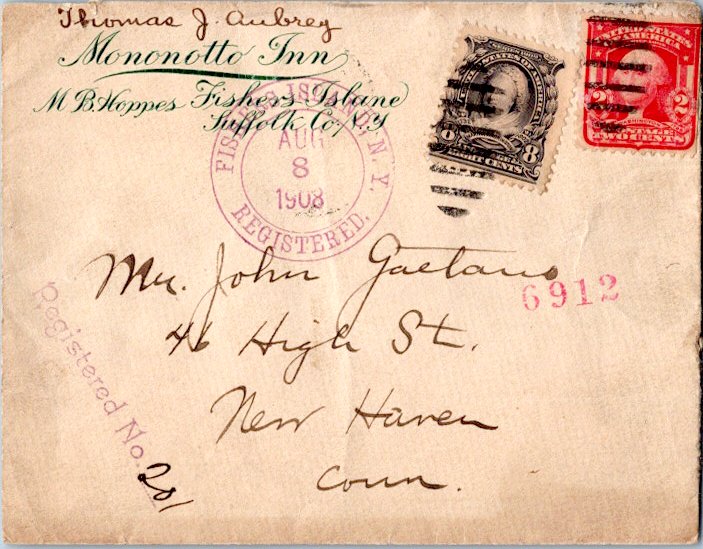 Thomas J. Aubrey
Mononotto Inn
M B. Hoppes Fishers Island
Suffolk Co/N.Y
FISHERS ISLAND, N.Y.
AUG
8
1908
REGISTERED.
8 8
EIGHT CENTS
UNITED STATES
OF AMERICA
2 2
POSTAGE
TWO CENTS
Mr. John Gaetano
46 High St.
New Haven
Conn.
6912
Registered No.
201